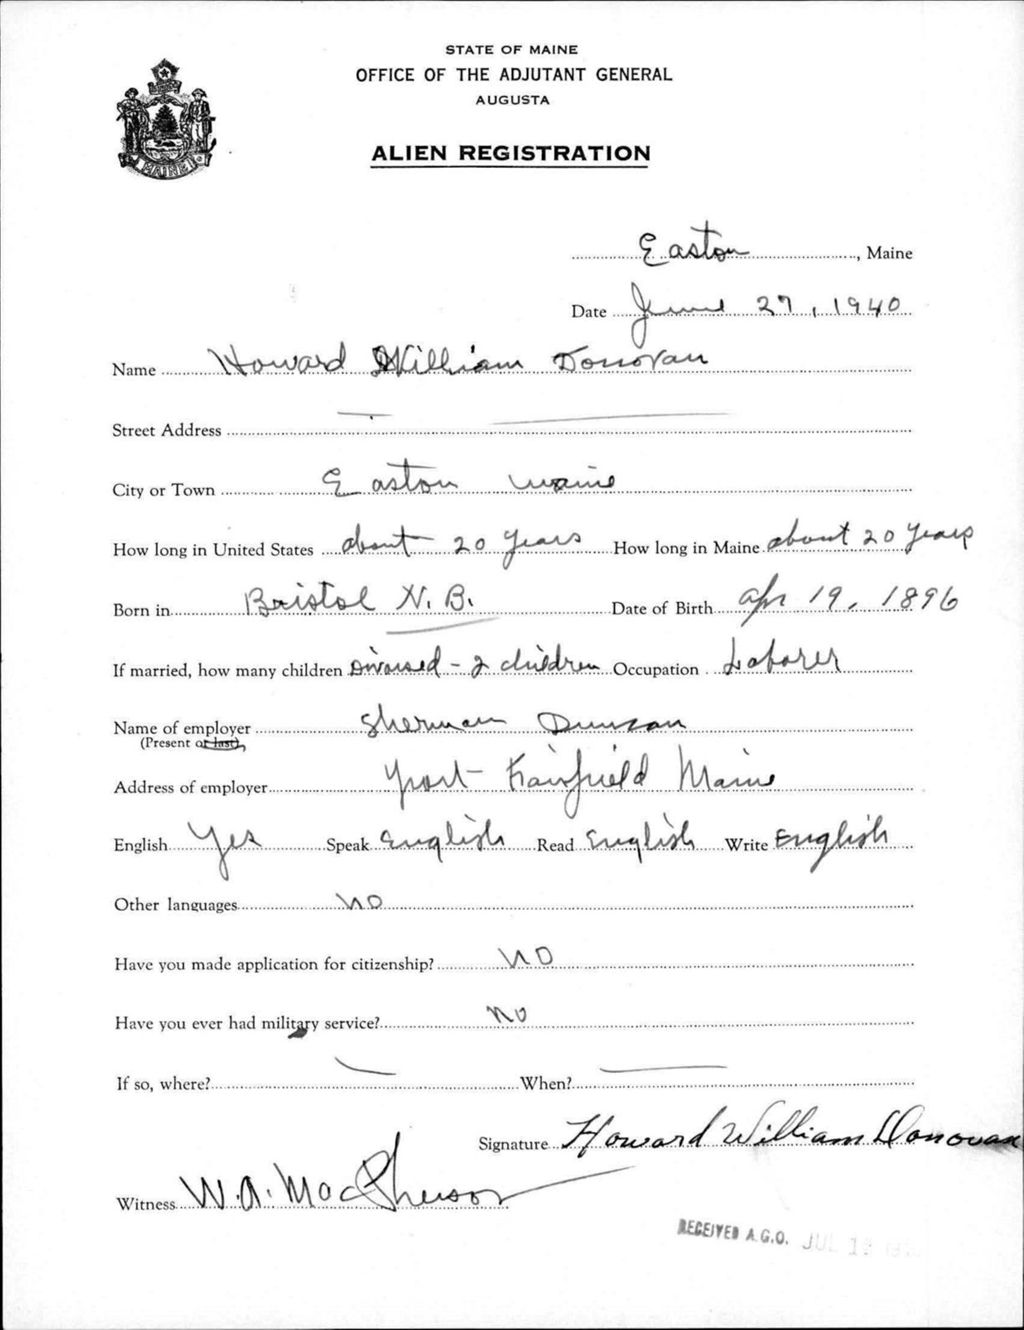 STATE OF MAINE
OFFICE OF THE ADJUTANT GENERAL
AUGUSTA
MAINE
ALIEN REGISTRATION
Easton, Maine
Date June 27, 1940
Name Howard William Donovan
Street Address —
City or Town Easton Maine
How long in United States about 20 years How long in Maine about 20 years
Born in Bristol N.B. Date of Birth Apr 19, 1896
If married, how many children Divorsed - 2 children Occupation Laborer
Name of employer Sherman Duncan
(Present or last)
Address of employer Fort Fairfield Maine
English Yes Speak English Read English Write English
Other languages NO
Have you made application for citizenship? NO
Have you ever had military service? No
If so, where? — When? —
Signature Howard William Donovan
Witness W.A. MacPherson
RECEIVED A.G.O. JUL